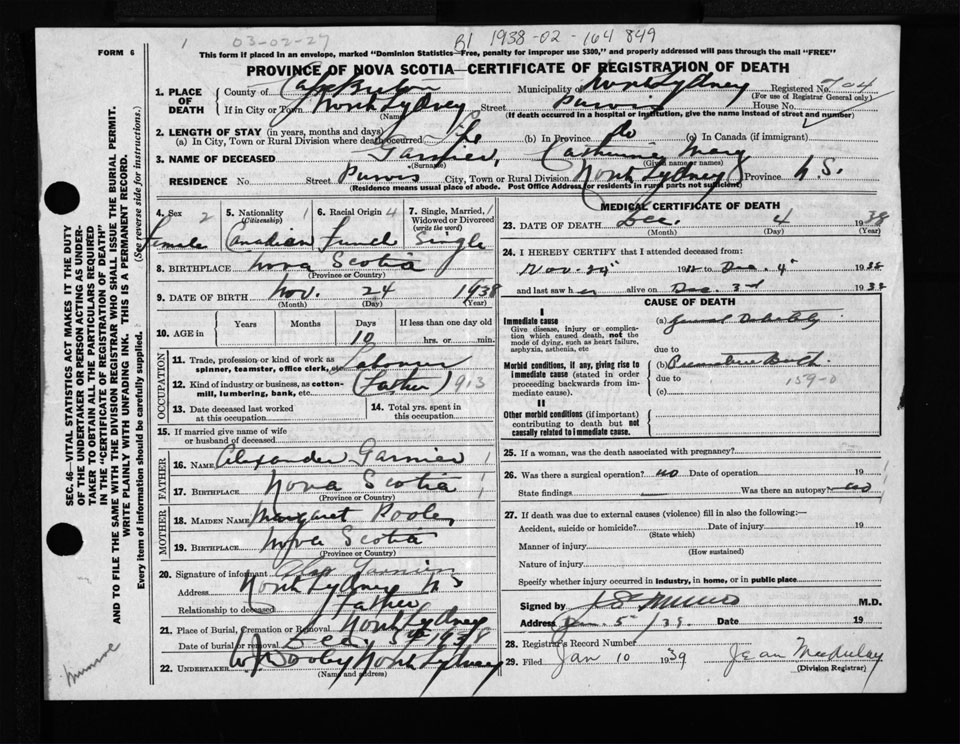 1 03-02-27 B1 1938-02-164849
FORM 6
This form if placed in an envelope, marked "Dominion Statistics—Free, penalty for improper use $300," and properly addressed will pass through the mail "FREE"
PROVINCE OF NOVA SCOTIA—CERTIFICATE OF REGISTRATION OF DEATH
1. PLACE OF DEATH County of Cape Breton Municipality of North Sydney Registered No. 704
(For use of Registrar General only)
If in City or Town North Sydney Street Purvis House No.
(Name) (If death occurred in a hospital or institution, give the name instead of street and number)
2. LENGTH OF STAY (in years, months and days)
(a) In City, Town or Rural Division where death occurred Life (b) In Province do (c) In Canada (if immigrant)
3. NAME OF DECEASED Garnier, Catherine Mary
(Surname) (Given name or names)
RESIDENCE No Street Purvis City, Town or Rural Division North Sydney Province N.S.
(Residence means usual place of abode. Post Office Address for residents in rural parts not sufficient)
4. Sex 2 Female
5. Nationality (Citizenship) 1 Canadian
6. Racial Origin 4 French
7. Single, Married, Widowed or Divorced (write the word) 1 Single
8. BIRTHPLACE Nova Scotia
(Province or Country)
9. DATE OF BIRTH Nov. 24 1938
(Month) (Day) (Year)
10. AGE in Years Months Days 10 If less than one day old hrs. or min.
OCCUPATION
11. Trade, profession or kind of work as spinner, teamster, office clerk, etc. Laborer
12. Kind of industry or business, as cotton-mill, lumbering, bank, etc. (Father) 913
13. Date deceased last worked at this occupation
14. Total yrs. spent in this occupation
15. If married give name of wife or husband of deceased
FATHER
16. NAME Alexander Garnier 1
17. BIRTHPLACE Nova Scotia 1
(Province or Country)
MOTHER
18. MAIDEN NAME Margaret
19. BIRTHPLACE Nova Scotia
(Province or Country)
20. Signature of informant Alex Garnier
Address North Sydney N S
Relationship to deceased Father
21. Place of Burial, Cremation or Removal North Sydney
Date of burial or removal Dec. 5th 1938
22. UNDERTAKER W. J. Dooley North Sydney
(Name and address)
MEDICAL CERTIFICATE OF DEATH
23. DATE OF DEATH Dec. 4 1938
(Month) (Day) (Year)
24. I HEREBY CERTIFY that I attended deceased from:
Nov. 24" 19 to Dec. 4" 1938
and last saw her alive on Dec. 3rd 1938
CAUSE OF DEATH
I
Immediate cause
Give disease, injury or complication which caused death, not the mode of dying, such as heart failure, asphyxia, asthenia, etc
(a) General Debility
due to
Morbid conditions, if any, giving rise to immediate cause (stated in order proceeding backwards from immediate cause).
(b) Premature Birth.
due to 159-0
(c)
II
Other morbid conditions (if important) contributing to death but not causally related to immediate cause.
25. If a woman, was the death associated with pregnancy?
26. Was there a surgical operation? no Date of operation 19
State findings — Was there an autopsy? no
27. If death was due to external causes (violence) fill in also the following:—
Accident, suicide or homicide? Date of injury 19
(State which)
Manner of injury
(How sustained)
Nature of injury
Specify whether injury occurred in industry, in home, or in public place
Signed by M.D.
Address Jan. 5" /39. Date 19
28. Registrar's Record Number
29. Filed Jan 10 1939 Jean MacAulay
(Division Registrar)
SEC. 46—VITAL STATISTICS ACT MAKES IT THE DUTY
OF THE UNDERTAKER OR PERSON ACTING AS UNDERTAKER
TO OBTAIN ALL THE PARTICULARS REQUIRED
IN THE "CERTIFICATE OF REGISTRATION OF DEATH"
AND TO FILE THE SAME WITH THE DIVISION REGISTRAR WHO SHALL ISSUE THE BURIAL PERMIT.
WRITE PLAINLY WITH UNFADING INK. THIS IS A PERMANENT RECORD.
Every item of information should be carefully supplied. (See reverse side for instructions.)